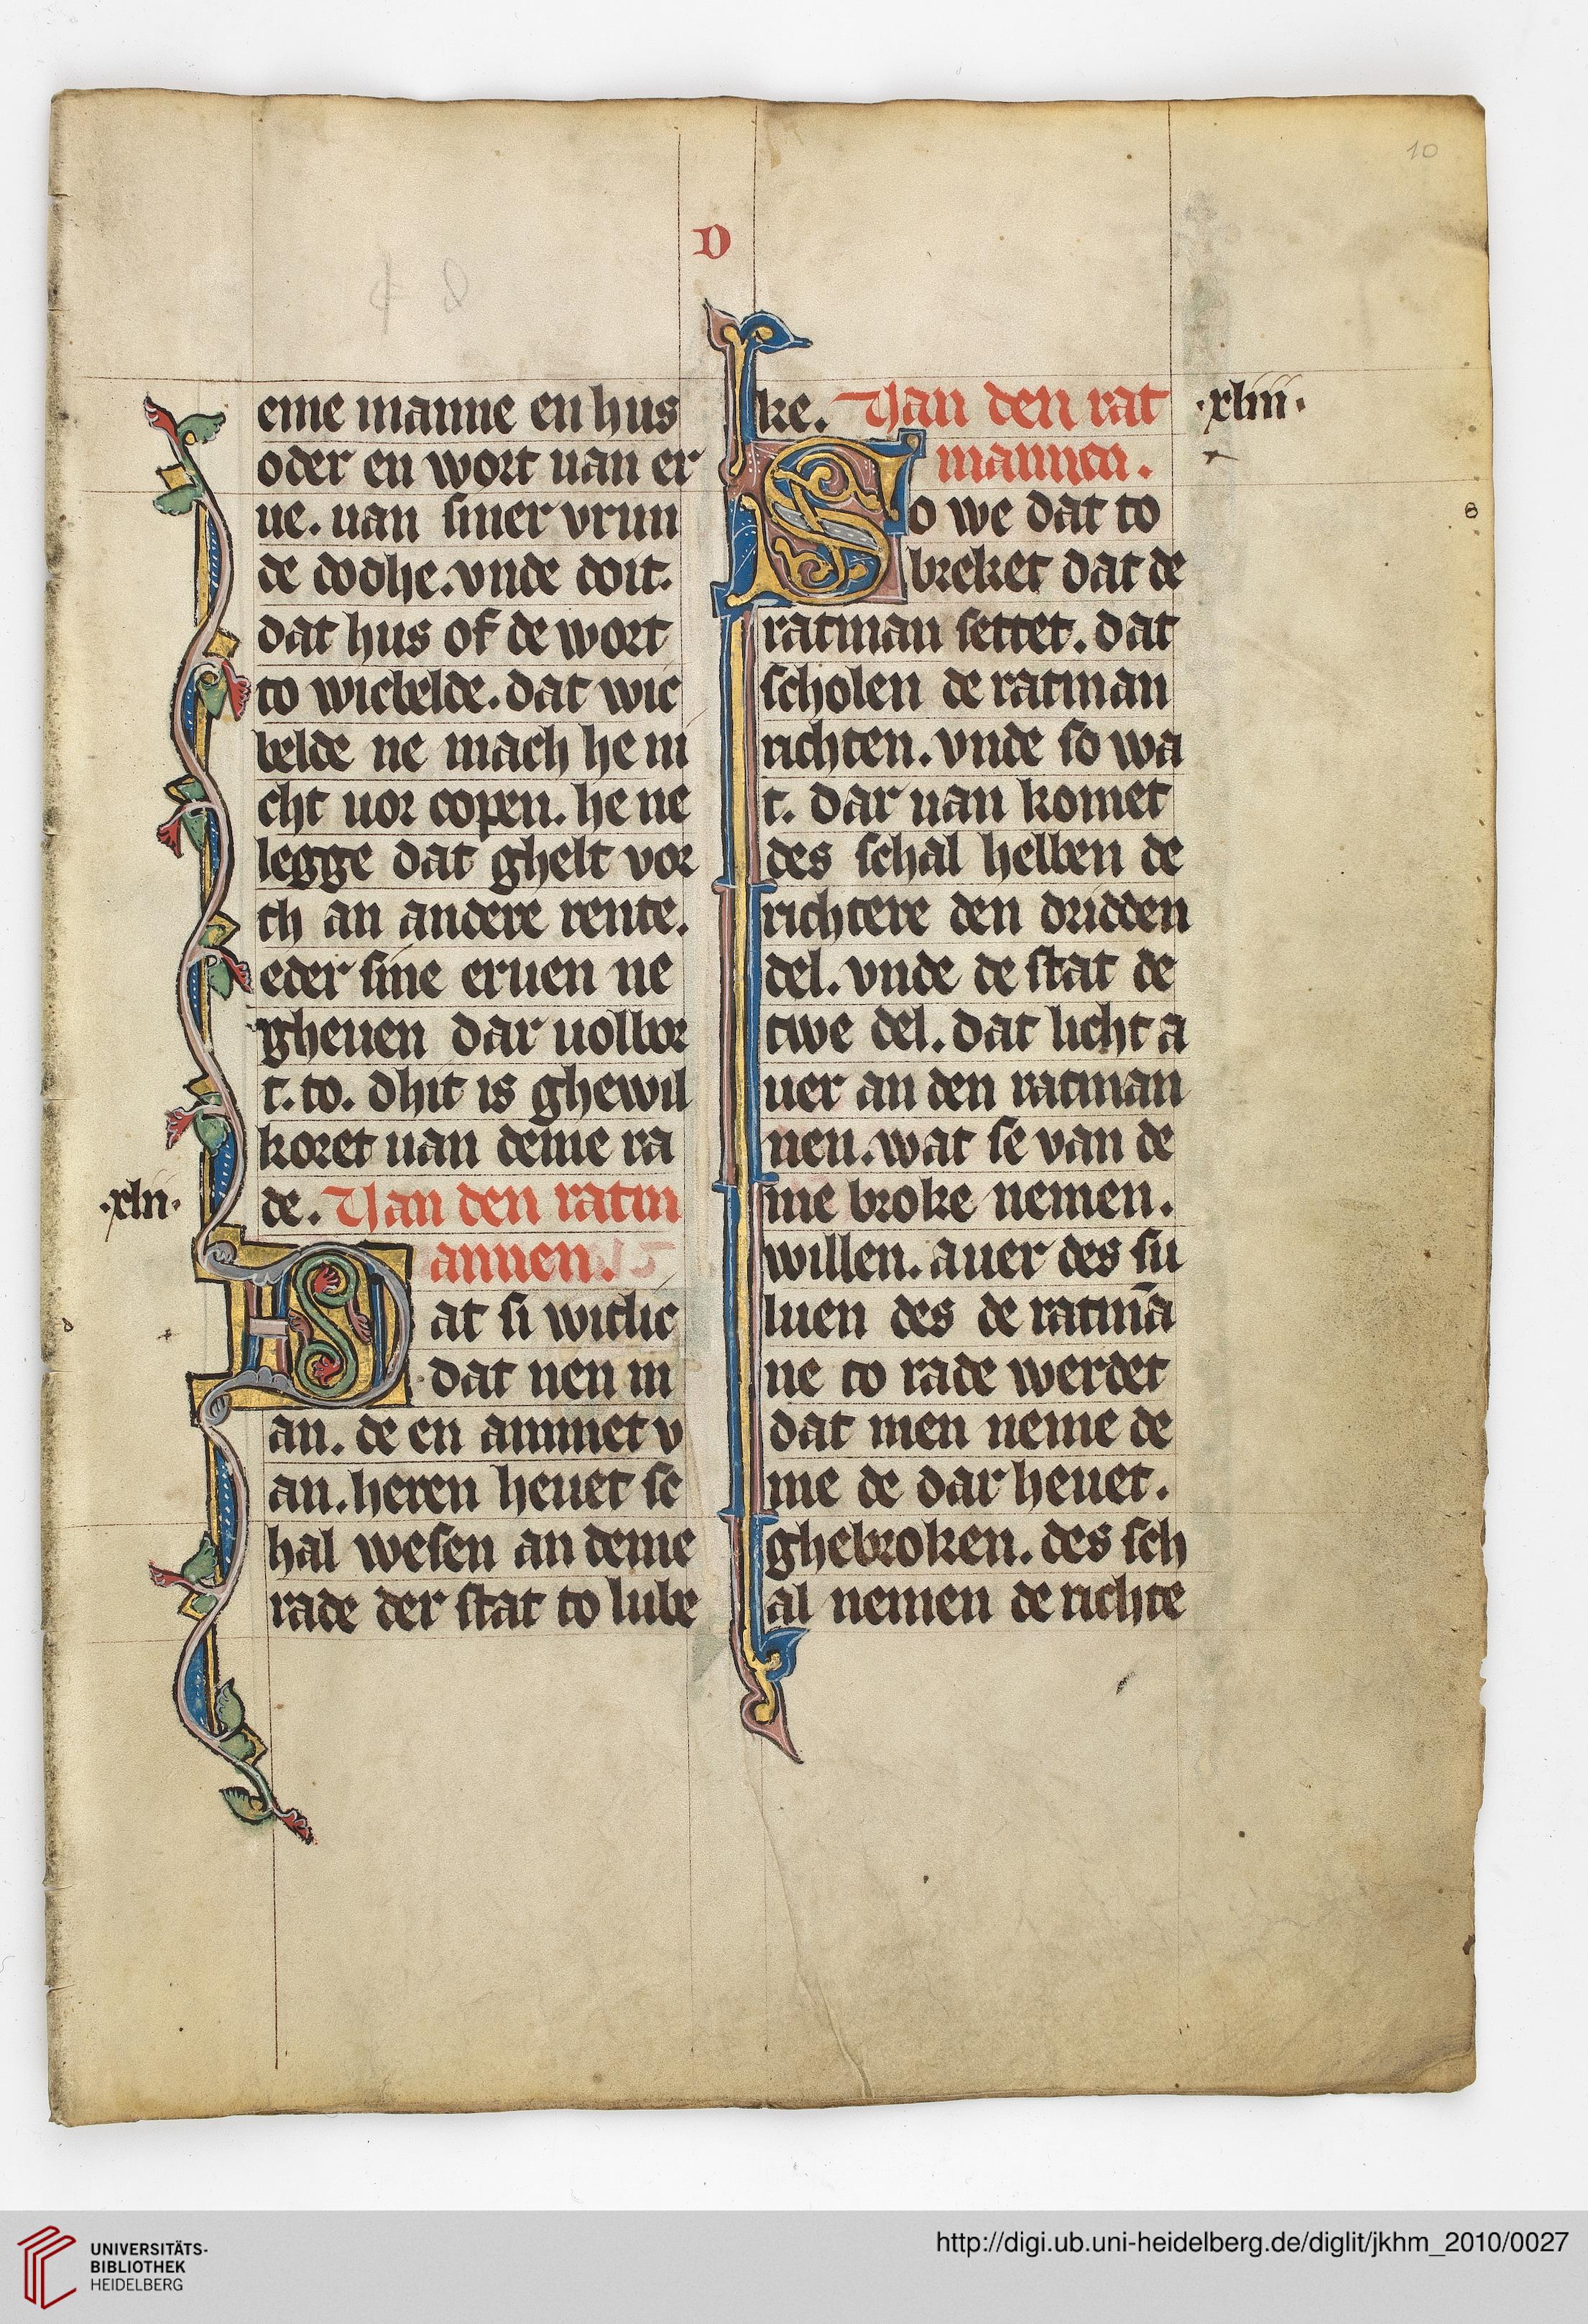 10
D
eme manne en hus
oder en wort uan er
ue. uan siner vrun
de dodhe. vnde doit.
dat hus of de wort
to wicbelde. dat wic
belde ne mach he ni
cht uor copen. he ne
legge dat ghelt vor
th an andere rente.
eder sine eruen ne
gheuen dar uolbor
t. to. dhit is ghewil
koret uan deme ra
·xlii·
de. Uan den ratm
annen.
Dat si witlic
dat nen m
an. de en ammet v
an. heren heuet sc
hal wesen an deme
rade der stat to lube
ke. Uan den rat
·xliii·
mannen.
So we dat to
breket dat de
ratman settet. dat
scholen de ratman
richten. vnde so wa
t. dar uan komet
des schal hebben de
richtere den dridden
del. vnde de stat de
twe del. dat licht a
uer an den ratman
nen. wat se van de
me broke nemen.
willen. auer des su
luen des de ratmā
ne to rade werdet
dat men neme de
me de dar heuet.
ghebroken. des sch
al nemen de richte
UNIVERSITÄTS-
BIBLIOTHEK
HEIDELBERG
http://digi.ub.uni-heidelberg.de/diglit/jkhm_2010/0027